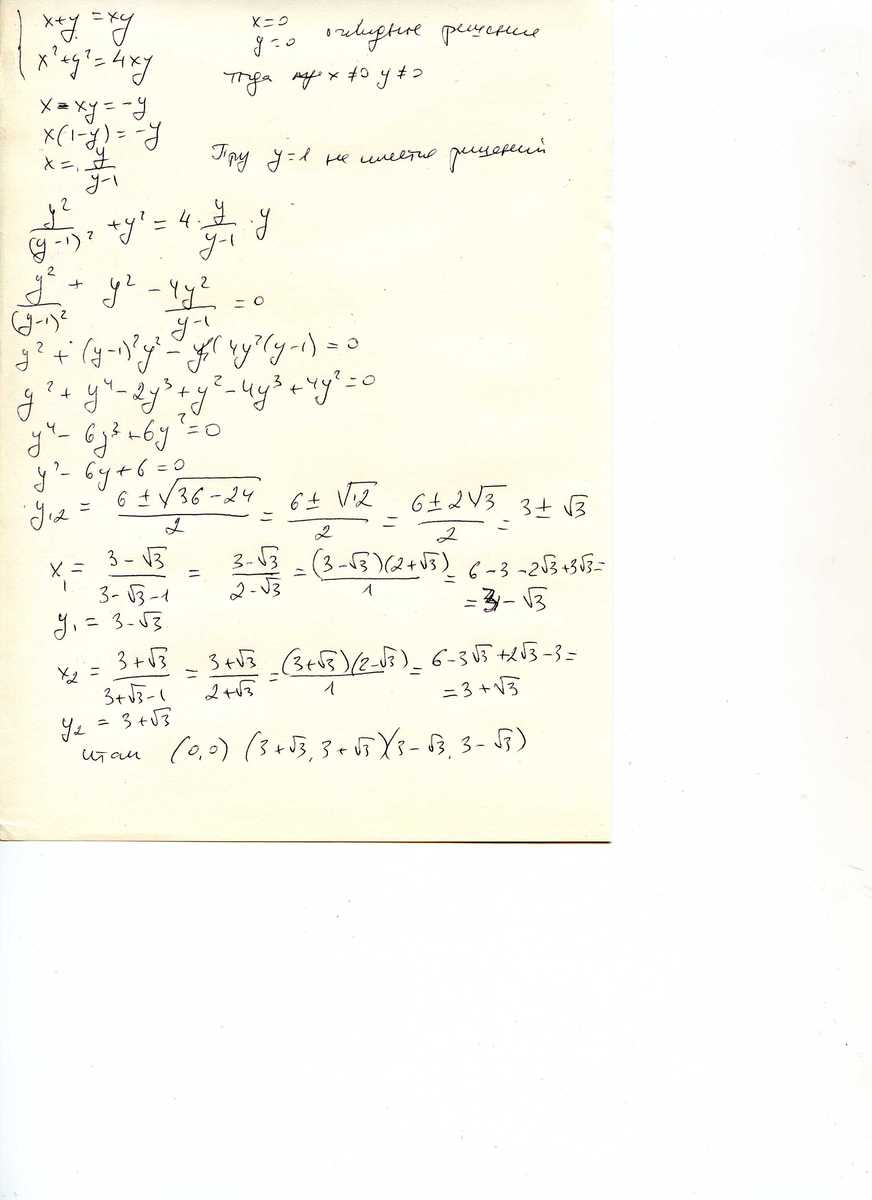 x+y = xy
x² + y² = 4xy
x=0
y=0 очевидные решение
тогда x ≠0 y ≠0
x - xy = -y
x(1-y) = -y
x = y/(y-1)
При y=1 не имеет решений
y²/(y-1)² + y² = 4 · y/(y-1) · y
y²/(y-1)² + y² - 4y²/(y-1) = 0
y² + (y-1)²y² - 4y²(y-1) = 0
y² + y⁴ - 2y³ + y² - 4y³ + 4y² = 0
y⁴ - 6y³ + 6y² = 0
y² - 6y + 6 = 0
y₁,₂ = (6 ± √(36-24))/2 = (6 ± √12)/2 = (6 ± 2√3)/2 = 3 ± √3
x₁ = (3-√3)/(3-√3-1) = (3-√3)/(2-√3) = (3-√3)(2+√3)/1 = 6 - 3 - 2√3 + 3√3 =
= 3 - √3
y₁ = 3-√3
x₂ = (3+√3)/(3+√3-1) = (3+√3)/(2+√3) = (3+√3)(2-√3)/1 = 6 - 3√3 + 2√3 - 3 =
= 3 + √3
y₂ = 3+√3
итак (0,0) (3+√3, 3+√3)(3-√3, 3-√3)